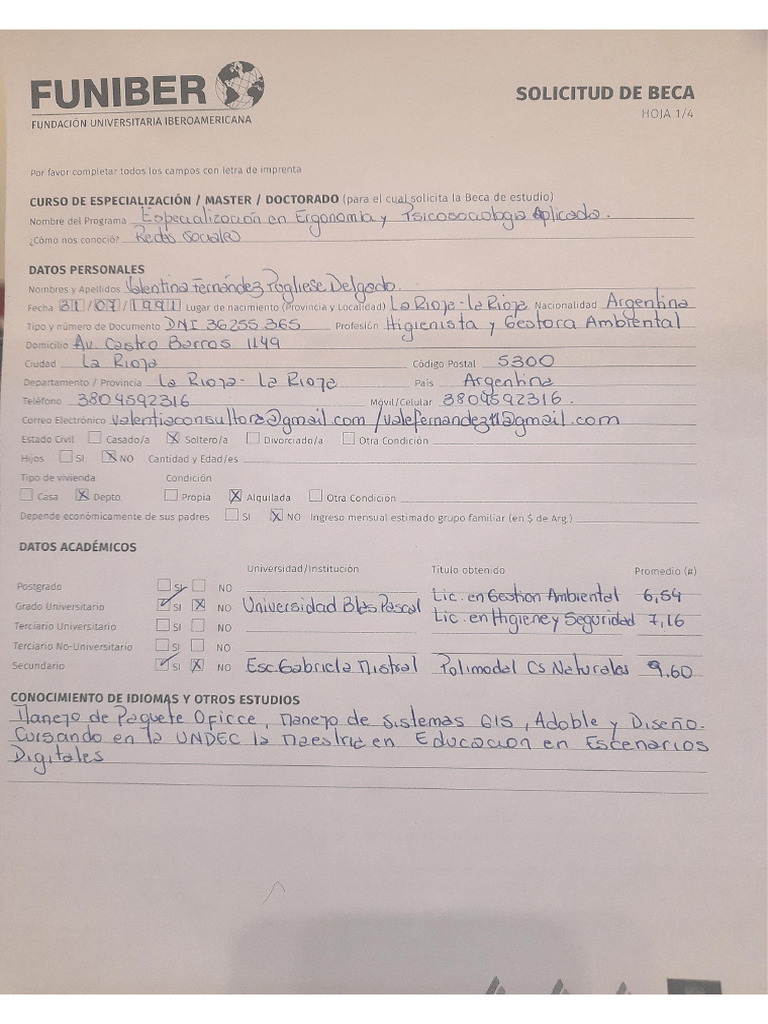 FUNIBER
FUNDACIÓN UNIVERSITARIA IBEROAMERICANA
SOLICITUD DE BECA
HOJA 1/4
Por favor completar todos los campos con letra de imprenta
CURSO DE ESPECIALIZACIÓN / MASTER / DOCTORADO (para el cual solicita la Beca de estudio)
Nombre del Programa Especialización en Ergonomía y Psicosociología Aplicada.
¿Cómo nos conoció? Redes Sociales
DATOS PERSONALES
Nombres y Apellidos Valentina Fernández Pugliese Delgado.
Fecha 31/07/1991 Lugar de nacimiento (Provincia y Localidad) La Rioja - La Rioja Nacionalidad Argentina
Tipo y número de Documento DNI 36255.365 Profesión Higienista y Gestora Ambiental
Domicilio Av. Castro Barros 1149
Ciudad La Rioja Código Postal 5300
Departamento / Provincia La Rioja - La Rioja País Argentina
Teléfono 3804592316 Móvil/Celular 3804592316.
Correo Electrónico valentiaconsultora@gmail.com /valefernandez11@gmail.com
Estado Civil Casado/a X Soltero/a Divorciado/a Otra Condición
Hijos SI X NO Cantidad y Edad/es
Tipo de vivienda Condición
Casa X Depto Propia X Alquilada Otra Condición
Depende económicamente de sus padres SI X NO Ingreso mensual estimado grupo familiar (en $ de Arg.)
DATOS ACADÉMICOS
Universidad/Institución Titulo obtenido Promedio (#)
Postgrado SI NO
Lic. en Gestion Ambiental 6,54
Grado Universitario SI X NO Universidad Blas Pascal Lic. en Higiene y Seguridad 7,16
Terciario Universitario SI NO
Terciario No-Universitario SI NO
Secundario SI X NO Esc. Gabriela Mistral Polimodal Cs Naturales 9.60
CONOCIMIENTO DE IDIOMAS Y OTROS ESTUDIOS
Manejo de Paquete Oficce, Manejo de Sistemas GIS, Adoble y Diseño.
Cursando en la UNDEC la Maestria en Educacion en Escenarios
Digitales